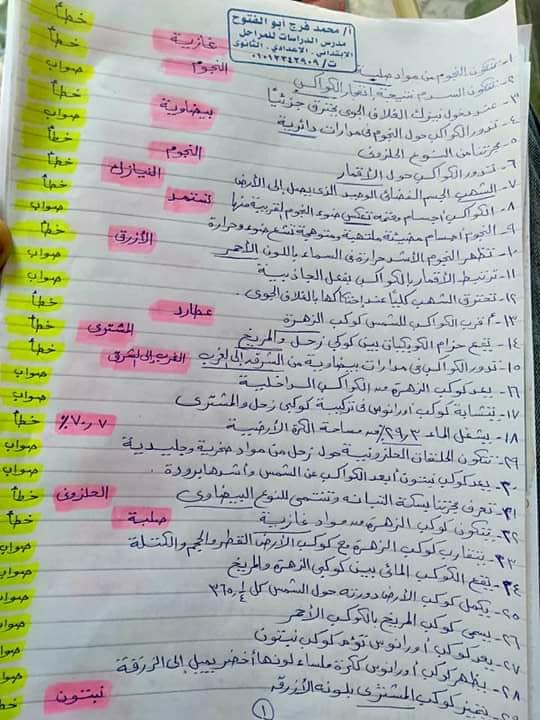 أ/ محمد فرج أبو الفتوح
مدرس الدراسات للمراحل
الابتدائى . الاعدادى . الثانوى
ت/ ٠١٠١٢٣٤٢٩٠٩
١- تتكون النجوم من مواد صلبة غازية خطأ
٢- تتكون السدم نتيجة إنفجار الكواكب النجوم خطأ
٣- عند دخول نيزك الغلاف الجوى يحترق جزئياً صواب
٤- تدور الكواكب حول النجوم فى مدارات دائرية بيضاوية خطأ
٥- مجرتنا من النوع الحلزونى صواب
٦- تدور الكواكب حول الأقمار النجوم خطأ
٧- الشهب الجسم الفضائى الوحيد الذى يصل إلى الأرض النيازك خطأ
٨- الكواكب أجسام معتمة تعكس ضوء النجوم القريبة منها تستمد خطأ
٩- النجوم أجسام مضيئة ملتهبة ومتوهجة تشع ضوء وحرارة صواب
١٠- تظهر النجوم الأشد حرارة فى السماء باللون الأحمر الأزرق خطأ
١١- ترتبط الأقمار بالكواكب بفعل الجاذبية صواب
١٢- تحترق الشهب كلياً عند إحتكاكها بالغلاف الجوى . صواب
١٣- أقرب الكواكب للشمس كوكب الزهرة عطارد خطأ
١٤- يقع حزام الكويكبات بين كوكبى زحل والمريخ المشترى خطأ
١٥- تدور الكواكب فى مدارات بيضاوية من الشرق إلى الغرب الغرب إلى الشرق خطأ
١٦- يعد كوكب الزهرة من الكواكب الداخلية صواب
١٧- يتشابة كوكب أورانوس فى تركيبة كوكبى زحل والمشترى صواب
١٨- يشغل الماء ٢٩,٣٪ من مساحة الكرة الأرضية ٧٠,٧٪ خطأ
٢٩- تتكون الحلقات الحلزونية حول زحل من مواد صخرية وجليدية صواب
٣٠- يعد كوكب نبتون أبعد الكواكب عن الشمس وأشدها برودة . صواب
٣١- تعرف مجرتنا بسكة التبانة وتنتمى للنوع البيضاوى الحلزونى خطأ
٣٢- يتكون كوكب الزهرة من مواد غازية صلبة خطأ
٣٣- يتقارب كوكب الزهرة مع كوكب الأرض القطر والحجم والكتلة صواب
٣٤- يقع الكوكب المائى بين كوكبى الزهرة والمريخ صواب
٢٥- يكمل كوكب الأرض دورته حول الشمس كل ٣٦٥ ١/٤ صواب
٢٦- يسمى كوكب المريخ بالكوكب الأحمر صواب
٢٧- يعد كوكب أورانوس توأم كوكب نبتون صواب
٢٨- يظهر كوكب أورانوس ككرة ملساء لونها أخضر يميل إلى الزرقة صواب
٢٩- يتميز كوكب المشترى بلونه الأزرق نبتون خطأ
١